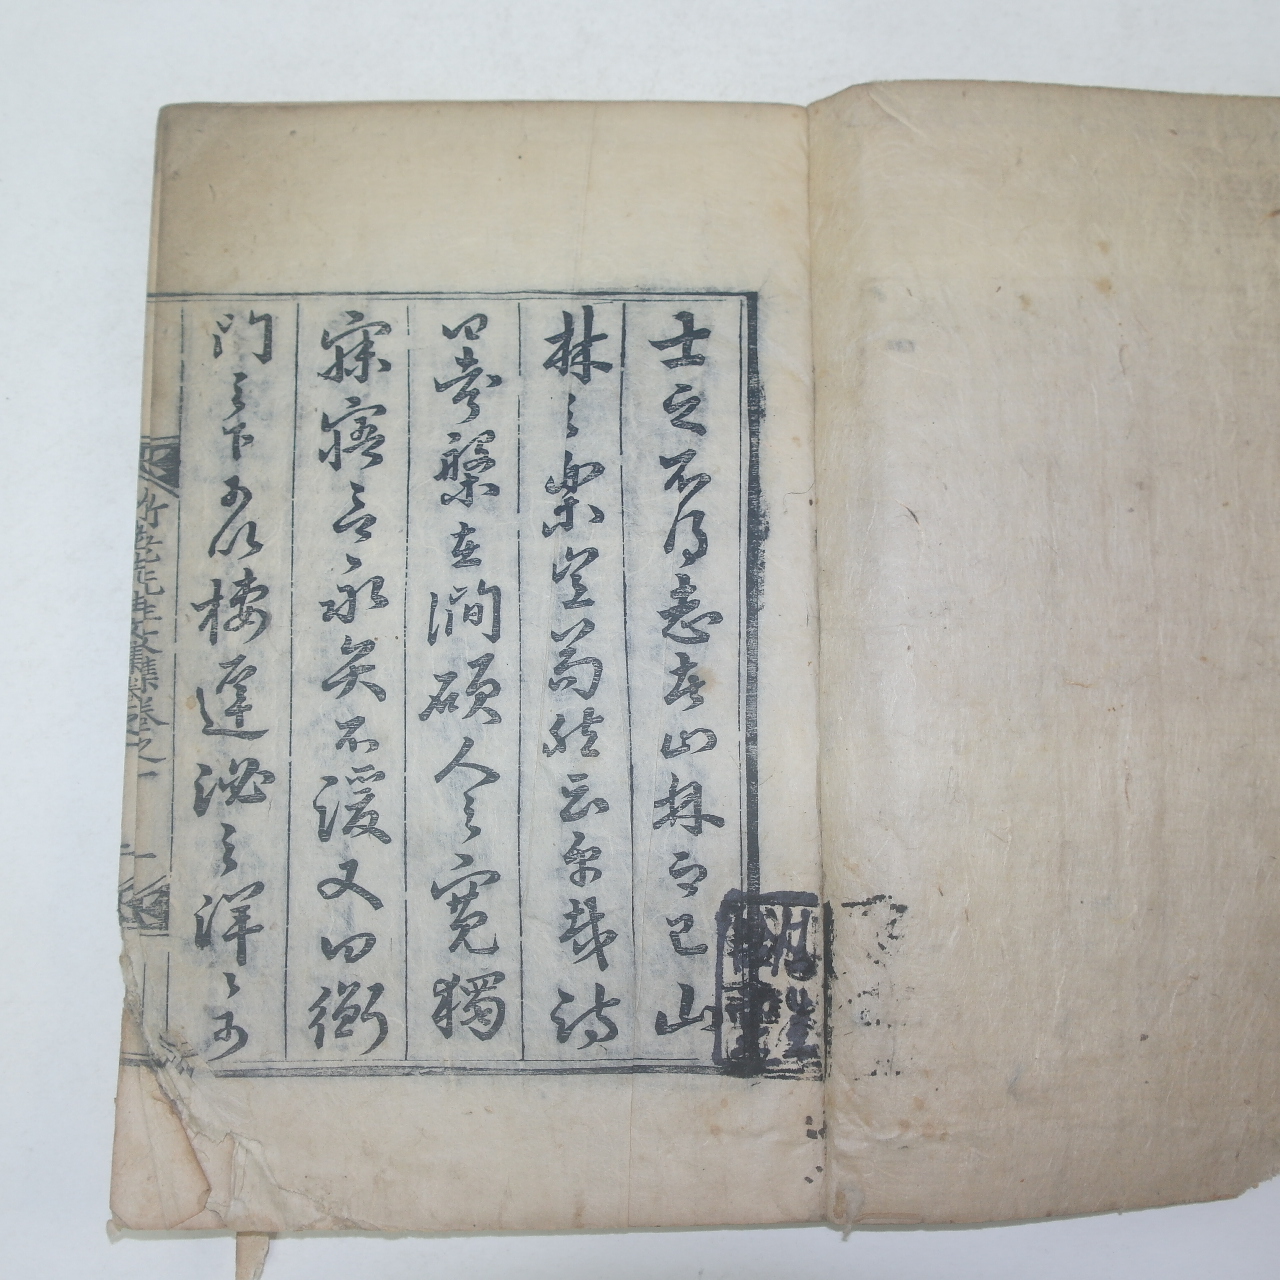 士之不得志者山林而已山
林之樂豈苟然云乎哉詩
曰考槃在澗碩人之寬獨
寐寤言永矢不諼又曰衡
門之下可以棲遲泌之洋洋可
先生文集卷之一